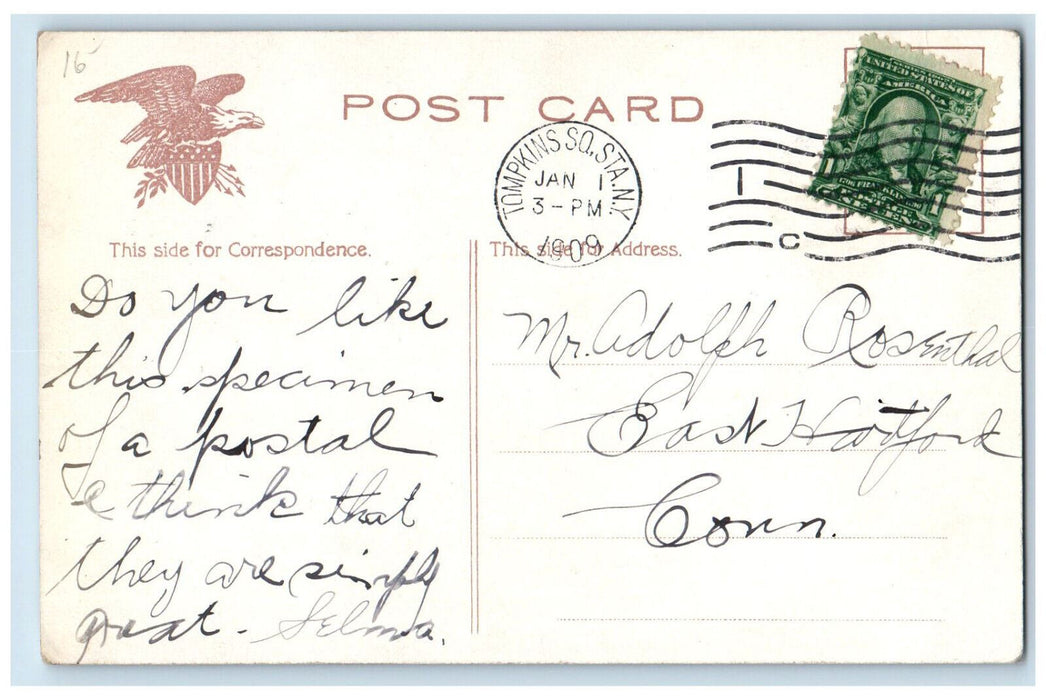 16
POST CARD
UNITED STATES OF
AMERICA
TOMPKINS SQ. STA. N.Y.
JAN 1
3-PM
1909
1
C
This side for Correspondence.
This side for Address.
Do you like
this specimen
of a postal
I think that
they are simply
great. Selma.
Mr. Adolph Rosenthal
East Hartford
Conn.